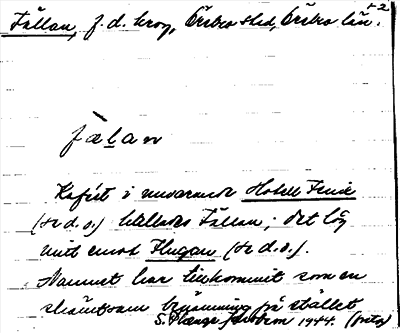 Fällan, f.d. krog, Örebro stad, Örebro län.
fälan
Kaféet i nuvarande Hotell Fenix
(se d.o.) kallades Fällan; det låg
mitt emot Flugan (se d.o.).
Namnet har tillkommit som en
skämtsam benämning på stället
S. 1944.